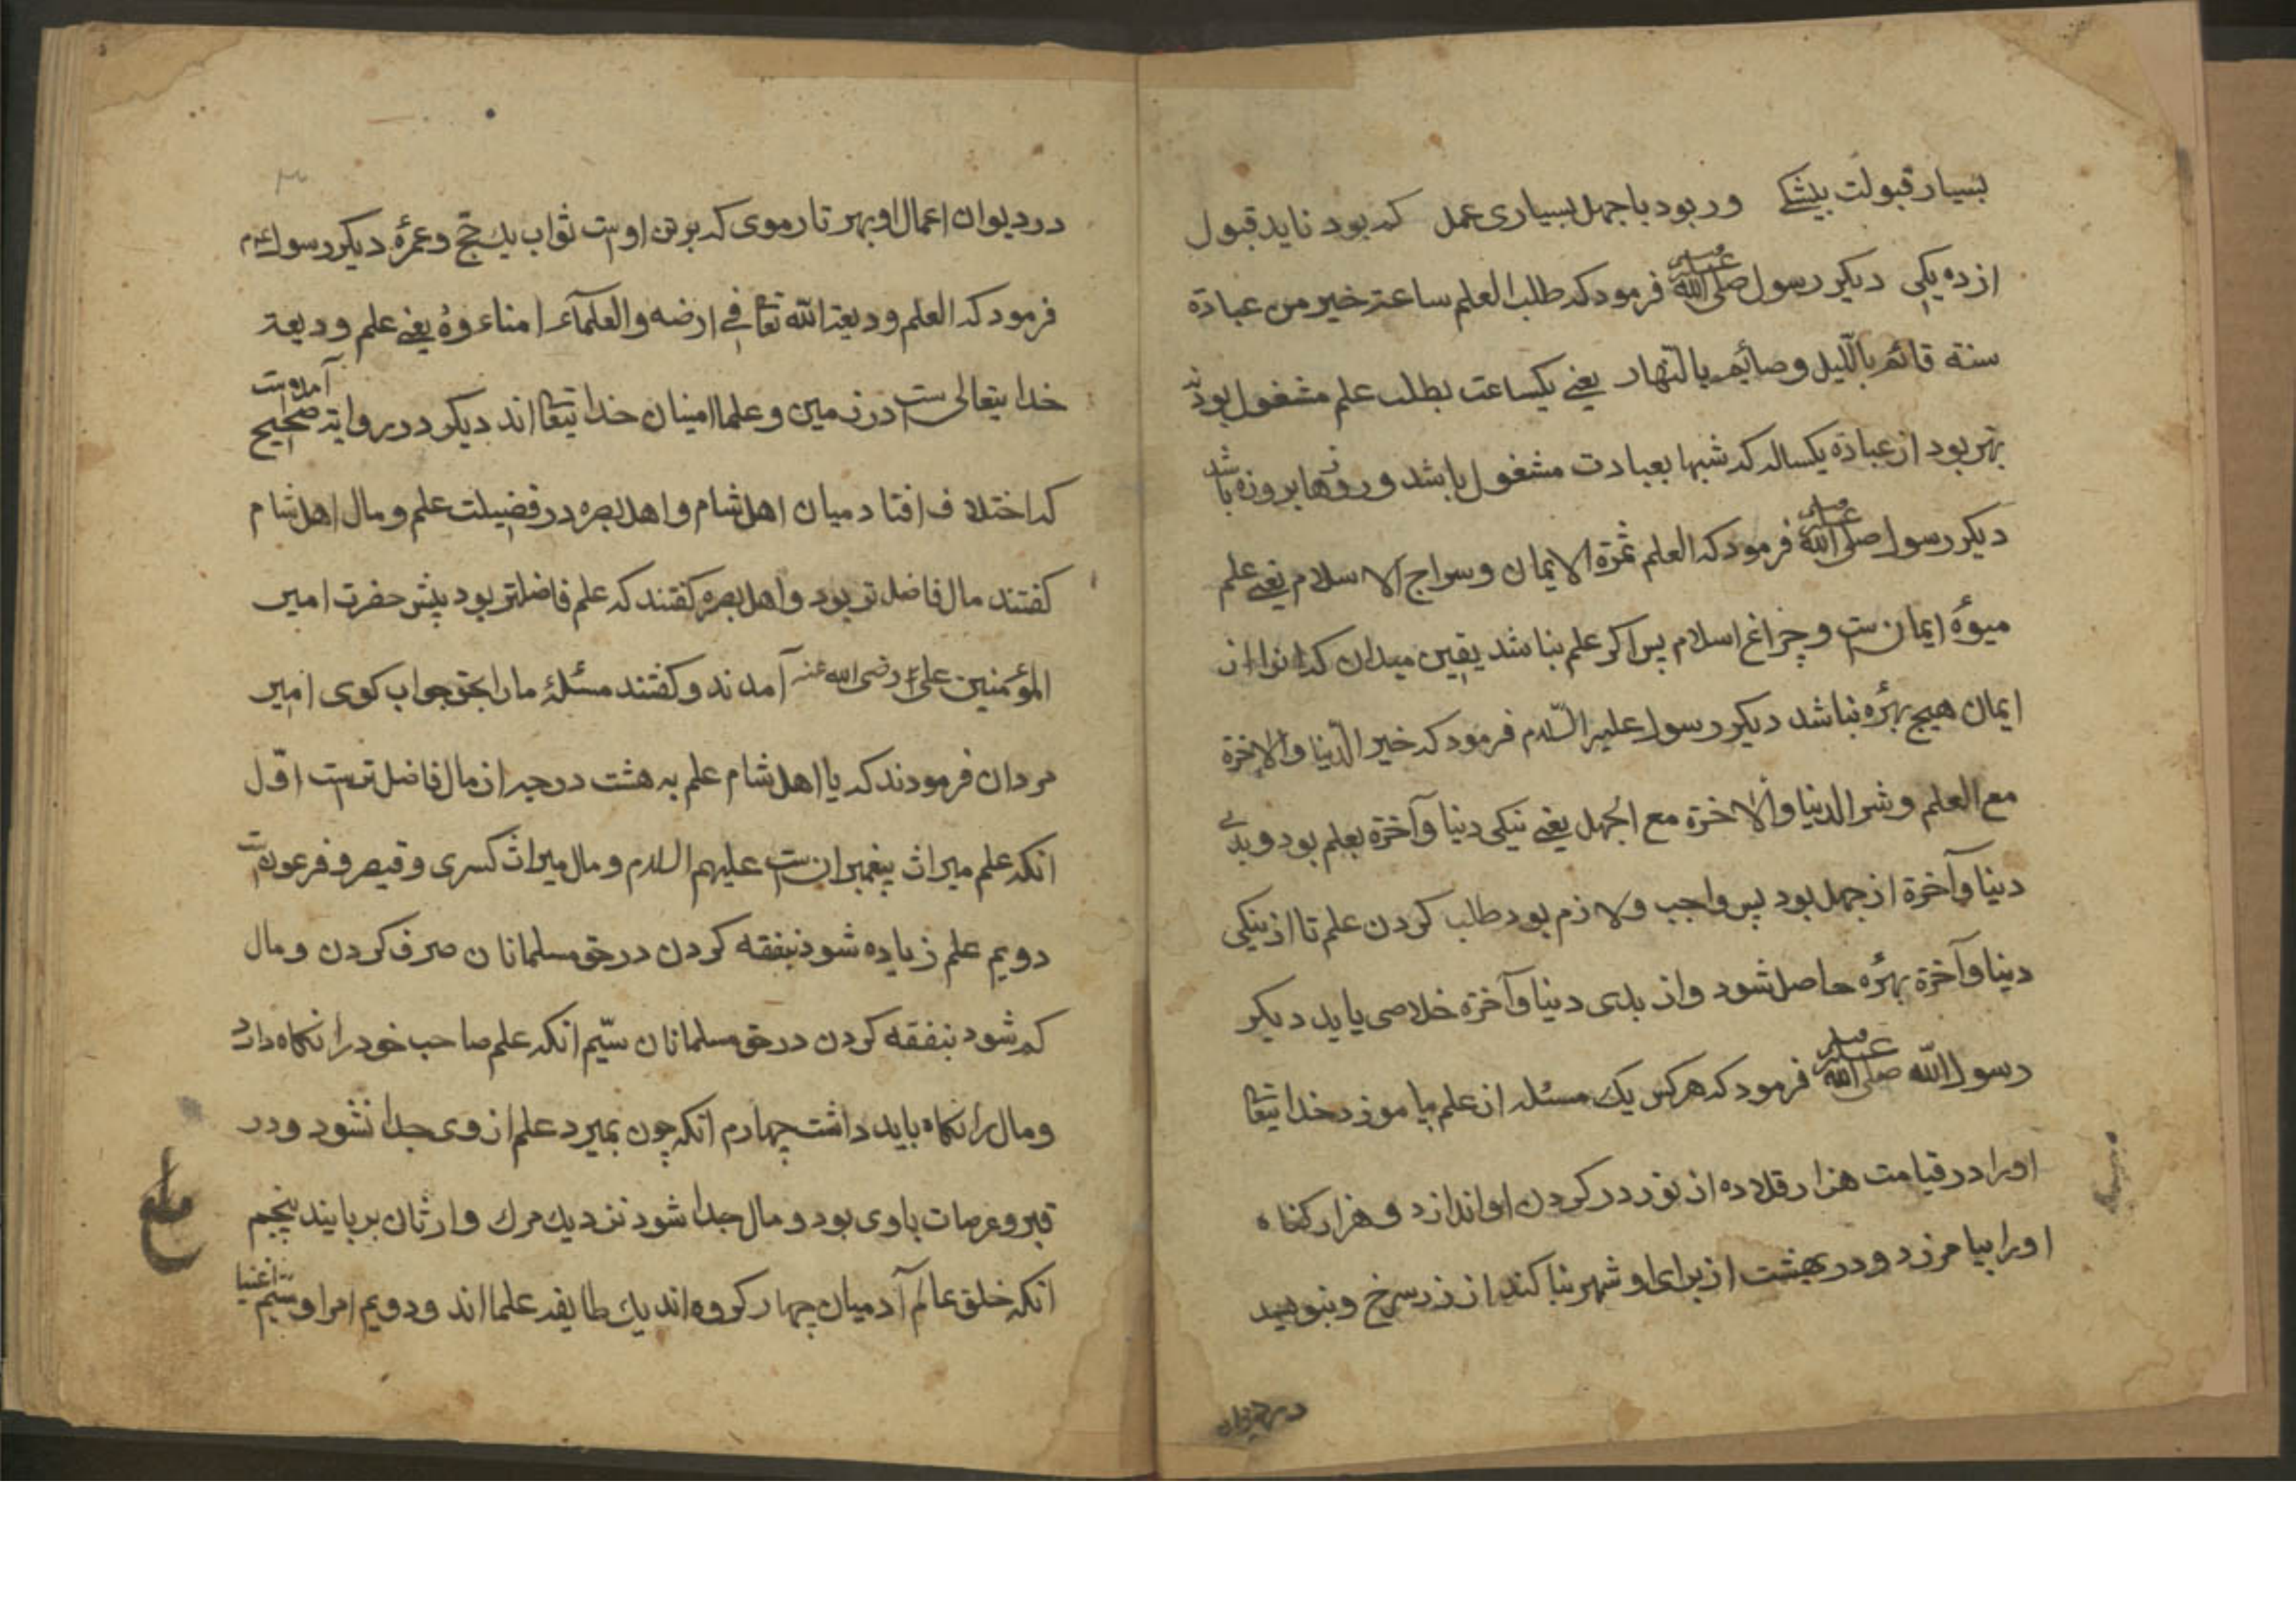 بسیار قبولت بیشکے ور بود با جهل بسیاری عمل که بود ناید قبول
از ده یکی دیکر رسول صلی الله علیه وسلم فرمود که طلب العلم ساعة خیر من عبادة
سنته قائم باللّیل وصائم بالنّهار یعنے یکساعت بطلب علم مشغول بودن
بهتر بود از عبادة یکساله که شبها بعبادت مشغول باشد وروزها بروزه باشد
دیکر رسول صلی الله علیه وسلم فرمود که العلم ثمرة الایمان وسراج الاسلام یعنے علم
میوهٔ ایمانست وچراغ اسلام پس اکر علم نباشد یقین میدان که انرا از
ایمان هیچ بهرٔه نباشد دیکر رسول علیه السّلام فرمود که خیر الدّنیا والاخرة
مع العلم وشر الدنیا والاخرة مع الجهل یعنے نیکی دنیا وآخرة بعلم بود وبدی
دنیا وآخرة از جهل بود پس واجب ولازم بود طلب کردن علم تا از نیکی
دنیا وآخرة بهرٔه حاصل شود واز بدی دنیا وآخرة خلاصی یابد دیکر
رسول الله صلی الله علیه وسلم فرمود که هرکس یك مسئله از علم بیاموزد خدایتعا
اورا در قیامت هزار قلاده از نور در کردن او اندازد وهزار کناه
اورا بیامرزد ودر بهشت از برای او شهر بنا کند از زر سرخ وبنویسد
در دیوان
در دیوان اعمال او بهر تار موی که بر تن اوست ثواب یك حجّ وعمرهٔ دیکر رسول عم
فرمود که العلم ودیعة الله تعا فی ارضه والعلمآء امناءوهُ یعنے علم ودیعة
خدایتعالی ست در زمین وعلما امینان خدایتعا اند دیکر در روایة صحیح آمده است
که اختلاف افتاد میان اهل شام واهل بصره در فضیلت علم ومال اهل شام
کفتند مال فاضل تر بود واهل بصره کفتند که علم فاضلتر بود پیش حضرت امیر
المؤمنین علی رضی الله عنه آمدند وکفتند مسئلهٔ مارا بحق جواب کوی امیر
مردان فرمودند که یا اهل شام علم به هشت درجه از مال فاضل ترست اوّل
انکه علم میراث پیغمبران ست علیهم السلام ومال میراث کسری وقیصر وفرعونست
دویم علم زیاده شود بنفقه کردن در حق مسلمانان صرف کردن ومال
کم شود بنفقه کردن در حق مسلمانان سیّم انکه علم صاحب خودرا نکاه دارد
ومال را نکاه باید داشت چهارم انکه چون بمیرد علم از وی جدا نشود ودر
قبر وعرصات باوی بود ومال جدا شود نزدیك مرك وارثان بربایند پنجم
انکه خلق عالم آدمیان چهار کروه اند یك طایفه علما اند ودویم امرا وسیّم اغنیا